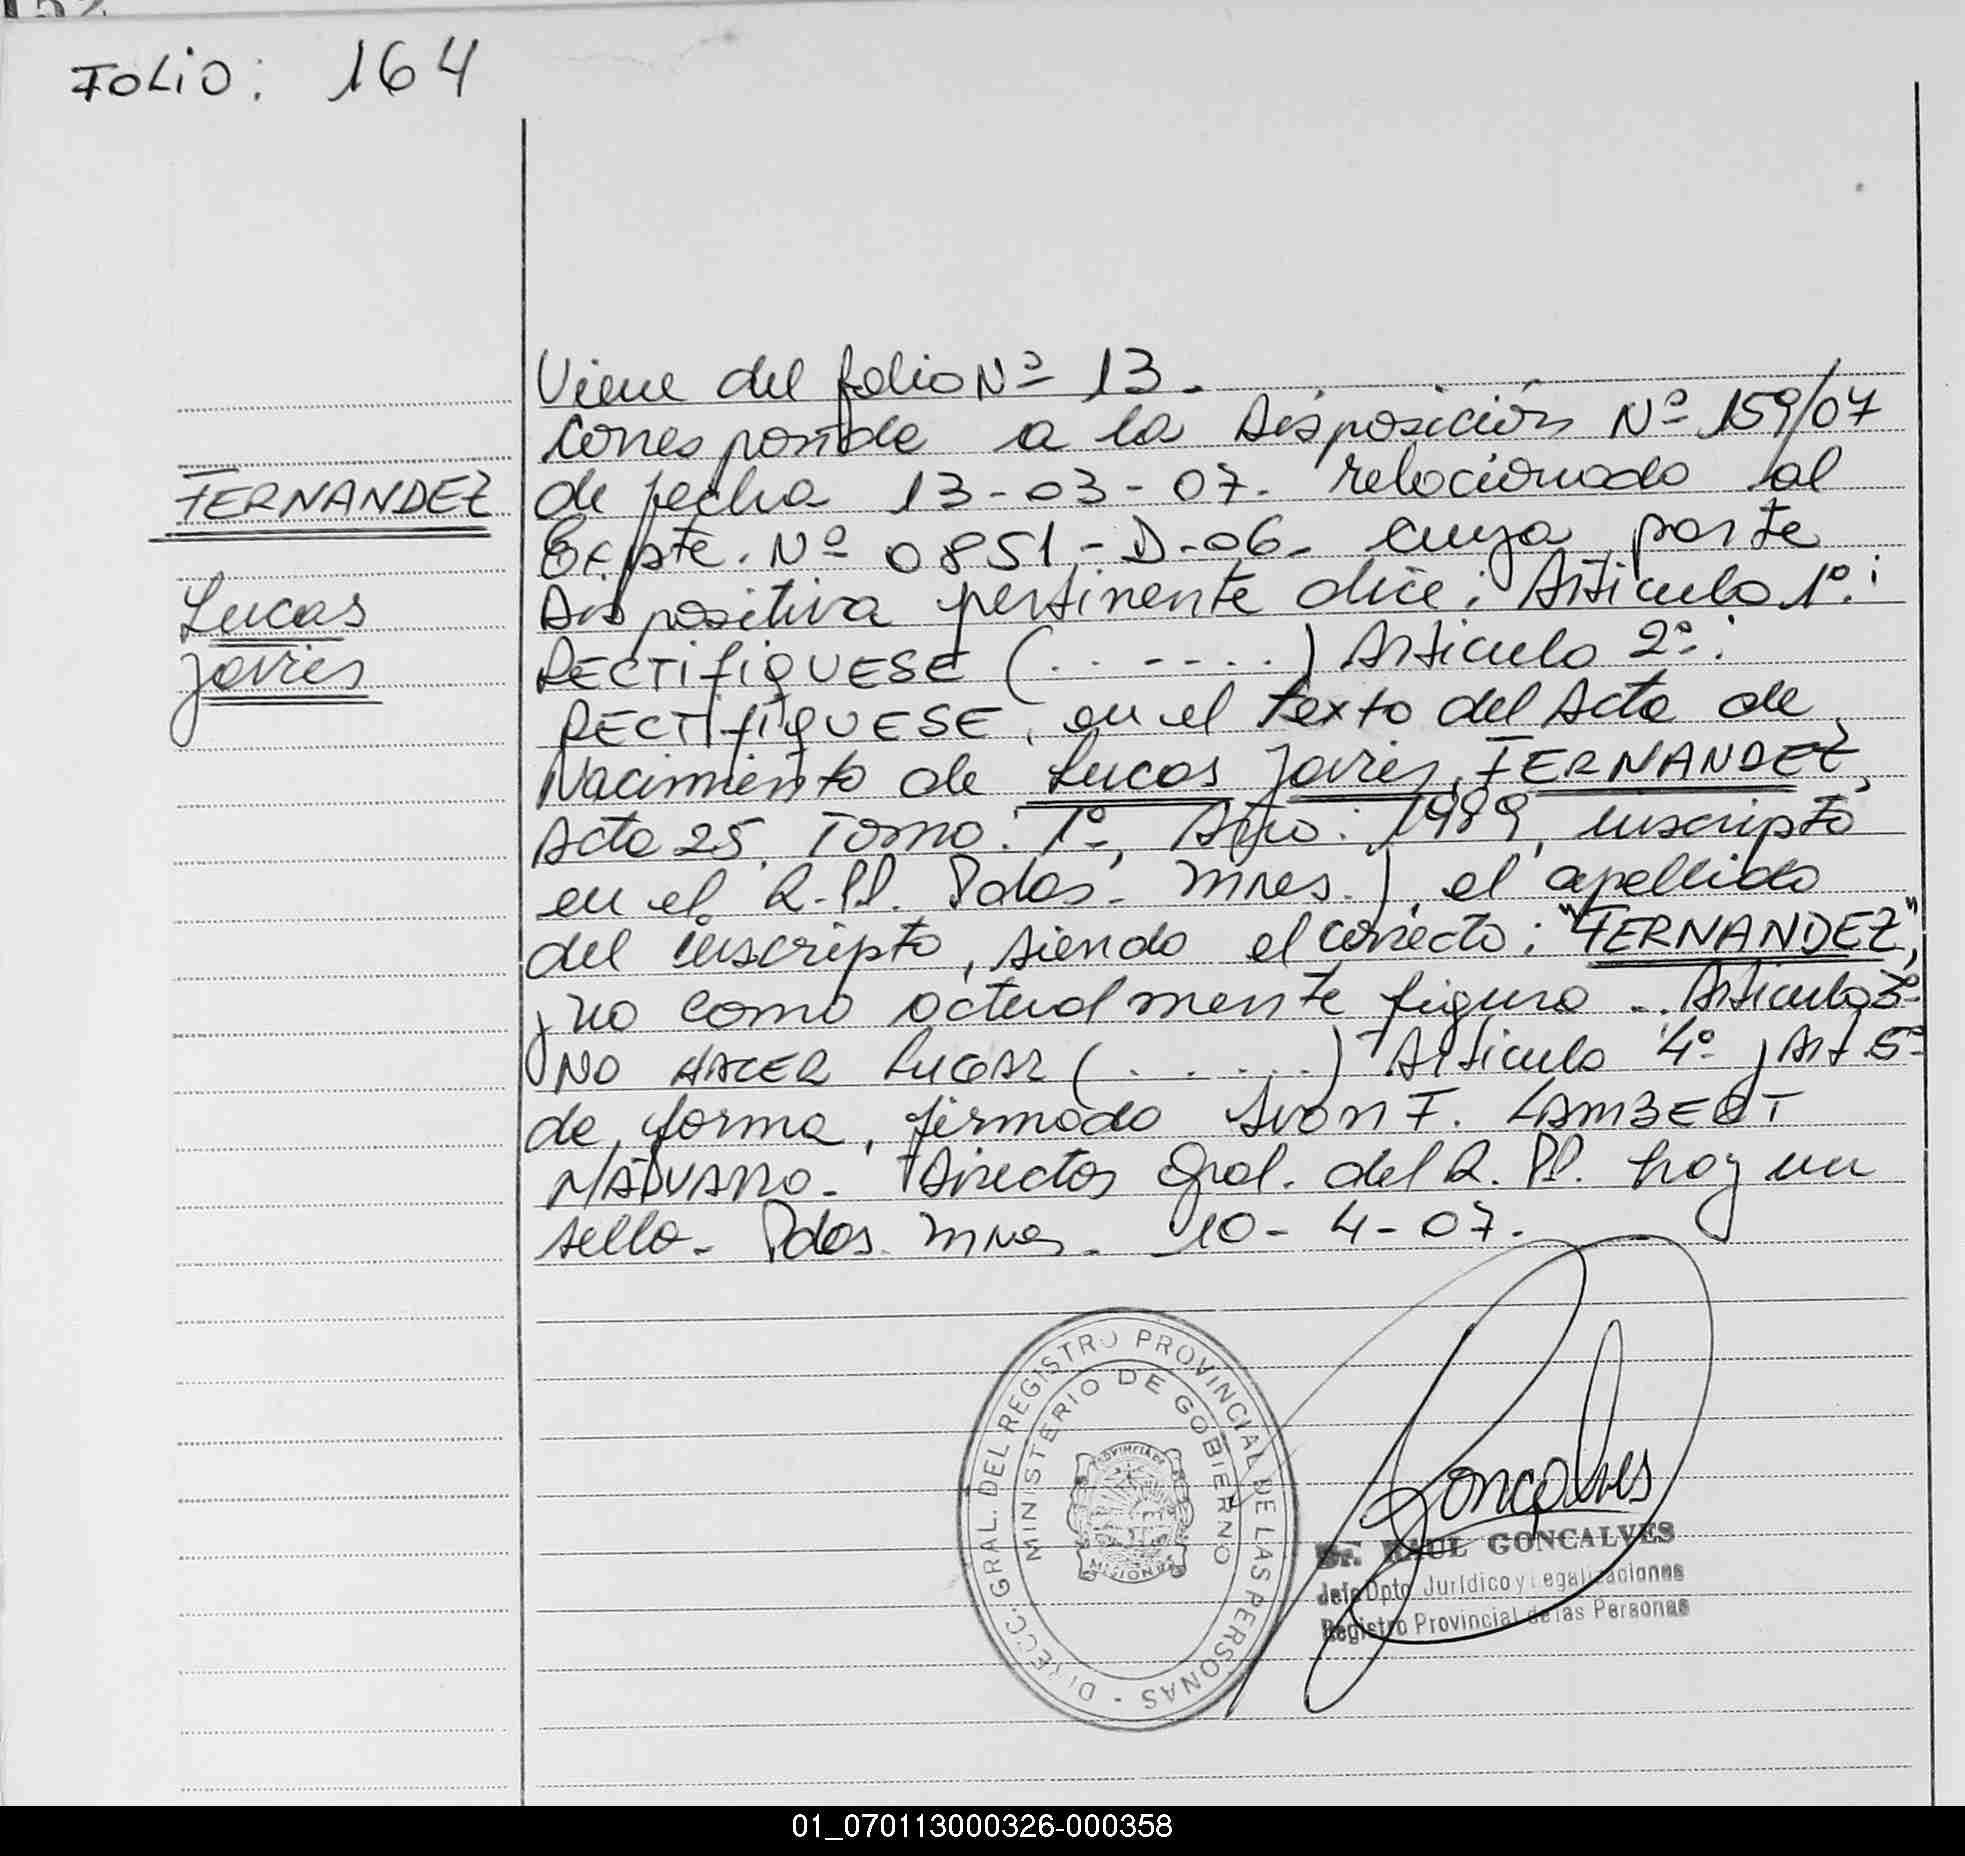 FOLIO: 164
Viene del folio Nº 13.
Corresponde a la Disposición Nº 159/07
FERNANDEZ
de fecha 13-03-07. relacionado al
Expte. Nº 0851-D-06. cuya parte
Lucas
Dispositiva pertinente dice: Artículo 1º:
Javier
RECTIFIQUESE (. . - - . . .) Artículo 2º:
RECTIFIQUESE, en el texto del Acta de
Nacimiento de Lucas Javier FERNANDEZ,
Acta 25. Tomo: 1º, Año: 1989, inscripto
en el R.PP. Pdas. Mnes.), el apellido
del inscripto, siendo el correcto: "FERNANDEZ",
y no como actualmente figura.. Artículo 3º
NO HACER LUGAR (. . . . .) Artículo 4º y Art 5º
de forma, firmado Ivon F. LAMBERT
Directos Gral. del R. PP. hay un
sello. Pdas. Mnes. 10-4-07.
DIRECC. GRAL. DEL REGISTRO PROVINCIAL DE LAS PERSONAS
MINISTERIO DE GOBIERNO
PROVINCIA DE
MISIONES
Goncalves
Dr. RAUL GONCALVES
Jefe Dpto. Jurídico y Legalizaciones
Registro Provincial de las Personas
01_070113000326-000358